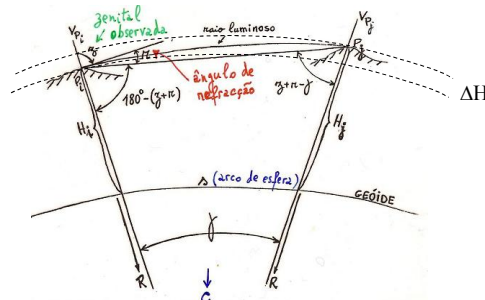 zenital
observada
V_Pi
z
raio luminoso
V_Pj
P_i
n
P_j
ângulo de
refracção
180°-(z+n)
z+n-γ
ΔH
H_i
H_j
s (arco de esfera)
GEÓIDE
γ
R
R
C